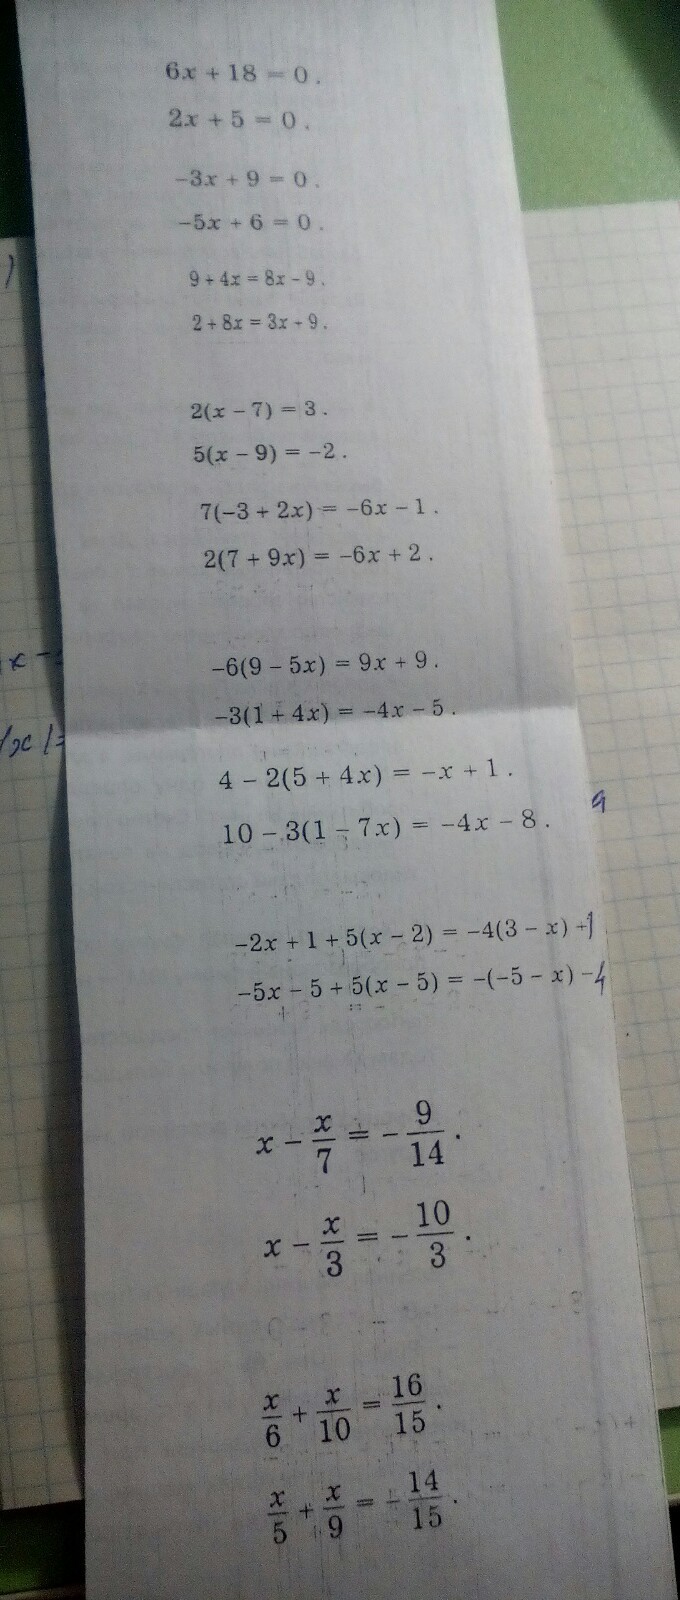 6x + 18 = 0 .
2x + 5 = 0 .
-3x + 9 = 0 .
-5x + 6 = 0 .
)
9 + 4x = 8x - 9 .
2 + 8x = 3x + 9 .
2(x - 7) = 3 .
5(x - 9) = -2 .
7(-3 + 2x) = -6x - 1 .
2(7 + 9x) = -6x + 2 .
x -
-6(9 - 5x) = 9x + 9 .
-3(1 + 4x) = -4x - 5 .
4 - 2(5 + 4x) = -x + 1 .
10 - 3(1 - 7x) = -4x - 8 .
-2x + 1 + 5(x - 2) = -4(3 - x) +1
-5x - 5 + 5(x - 5) = -(-5 - x) -4
x - x/7 = - 9/14 .
x - x/3 = - 10/3 .
x/6 + x/10 = 16/15 .
x/5 + x/9 = - 14/15 .